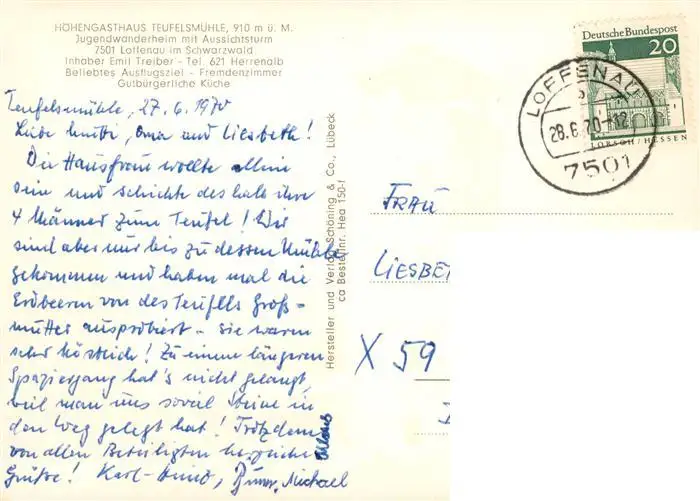 HÖHENGASTHAUS TEUFELSMÜHLE, 910 m ü. M.
Jugendwanderheim mit Aussichtsturm
7501 Loffenau im Schwarzwald
Inhaber Emil Treiber - Tel. 621 Herrenalb
Beliebtes Ausflugsziel - Fremdenzimmer
Gutbürgerliche Küche
Teufelsmühle, 27.6.1970
Liebe Mutti, Oma und Liesbeth!
Die Hausfrau wollte allein
sein und schickte deshalb ihre
4 Männer zum Teufel! Wir
sind aber nur bis zu dessen Mühle
gekommen und haben mal die
Erdbeeren von des Teufels Groß-
mutter ausprobiert - sie waren
sehr köstlich! Zu einem längeren
Spaziergang hat's nicht gelangt,
weil man uns soviel Steine in
den Weg gelegt hat! Trotzdem
von allen Beteiligten herzliche
Grüße! Karl-Heinz, Michael
Hersteller und Verlag Schöning & Co., Lübeck
ca Bestellnr. Hea 150-f
Deutsche Bundespost
20
LORSCH / HESSEN
LOFFENAU
28.6.70-12
7501
FRAU
LIESBET
X 59